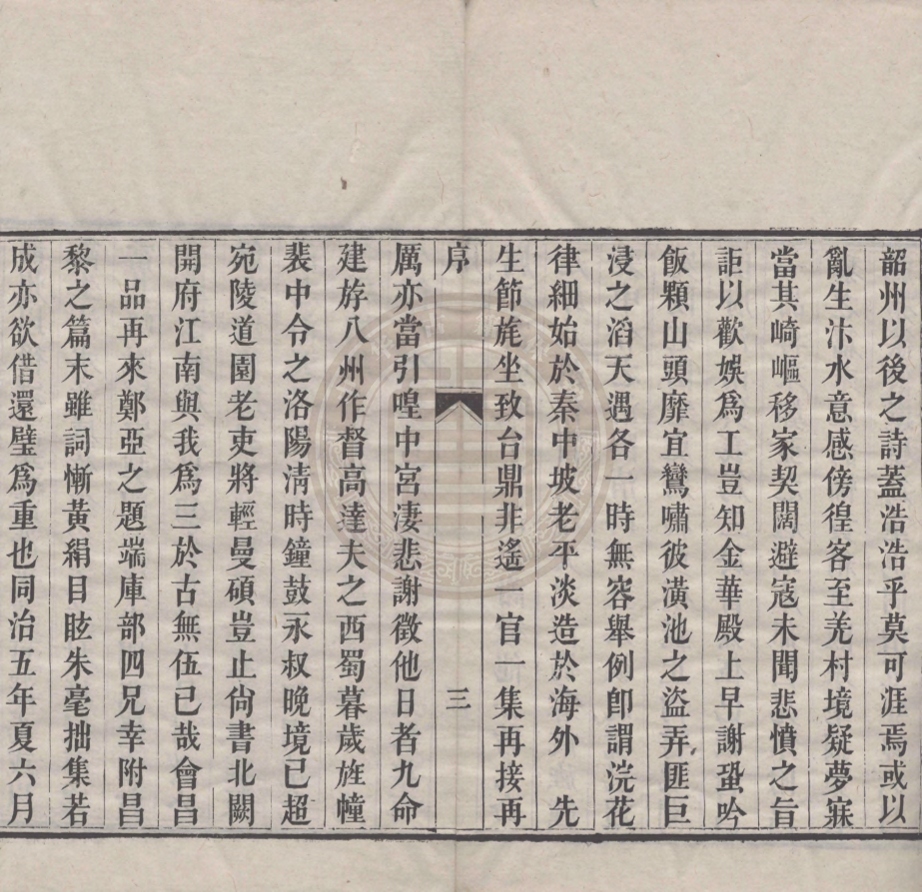 韶州以後之詩蓋浩浩乎莫可涯焉或以
亂生汴水意感傍徨客至羌村境疑夢寐
當其崎嶇移家契闊避寇未聞悲憤之旨
詎以歡娛爲工豈知金華殿上早謝蛩吟
飯顆山頭靡宜鸞嘯彼潢池之盜弄匪巨
浸之滔天遇各一時無容舉例卽謂浣花
律細始於秦中坡老平淡造於海外　先
生節旄坐致台鼎非遙一官一集再接再
序　三
厲亦當引喤中宮凄悲謝徵他日者九命
建斿八州作督高達夫之西蜀暮歲旌幢
裴中令之洛陽淸時鐘鼓永叔晚境已超
宛陵道園老吏將輕曼碩豈止尙書北闕
開府江南與我爲三於古無伍已哉會昌
一品再來鄭亞之題端庫部四兄幸附昌
黎之篇末雖詞慚黃絹目眩朱毫拙集若
成亦欲借還璧爲重也同治五年夏六月